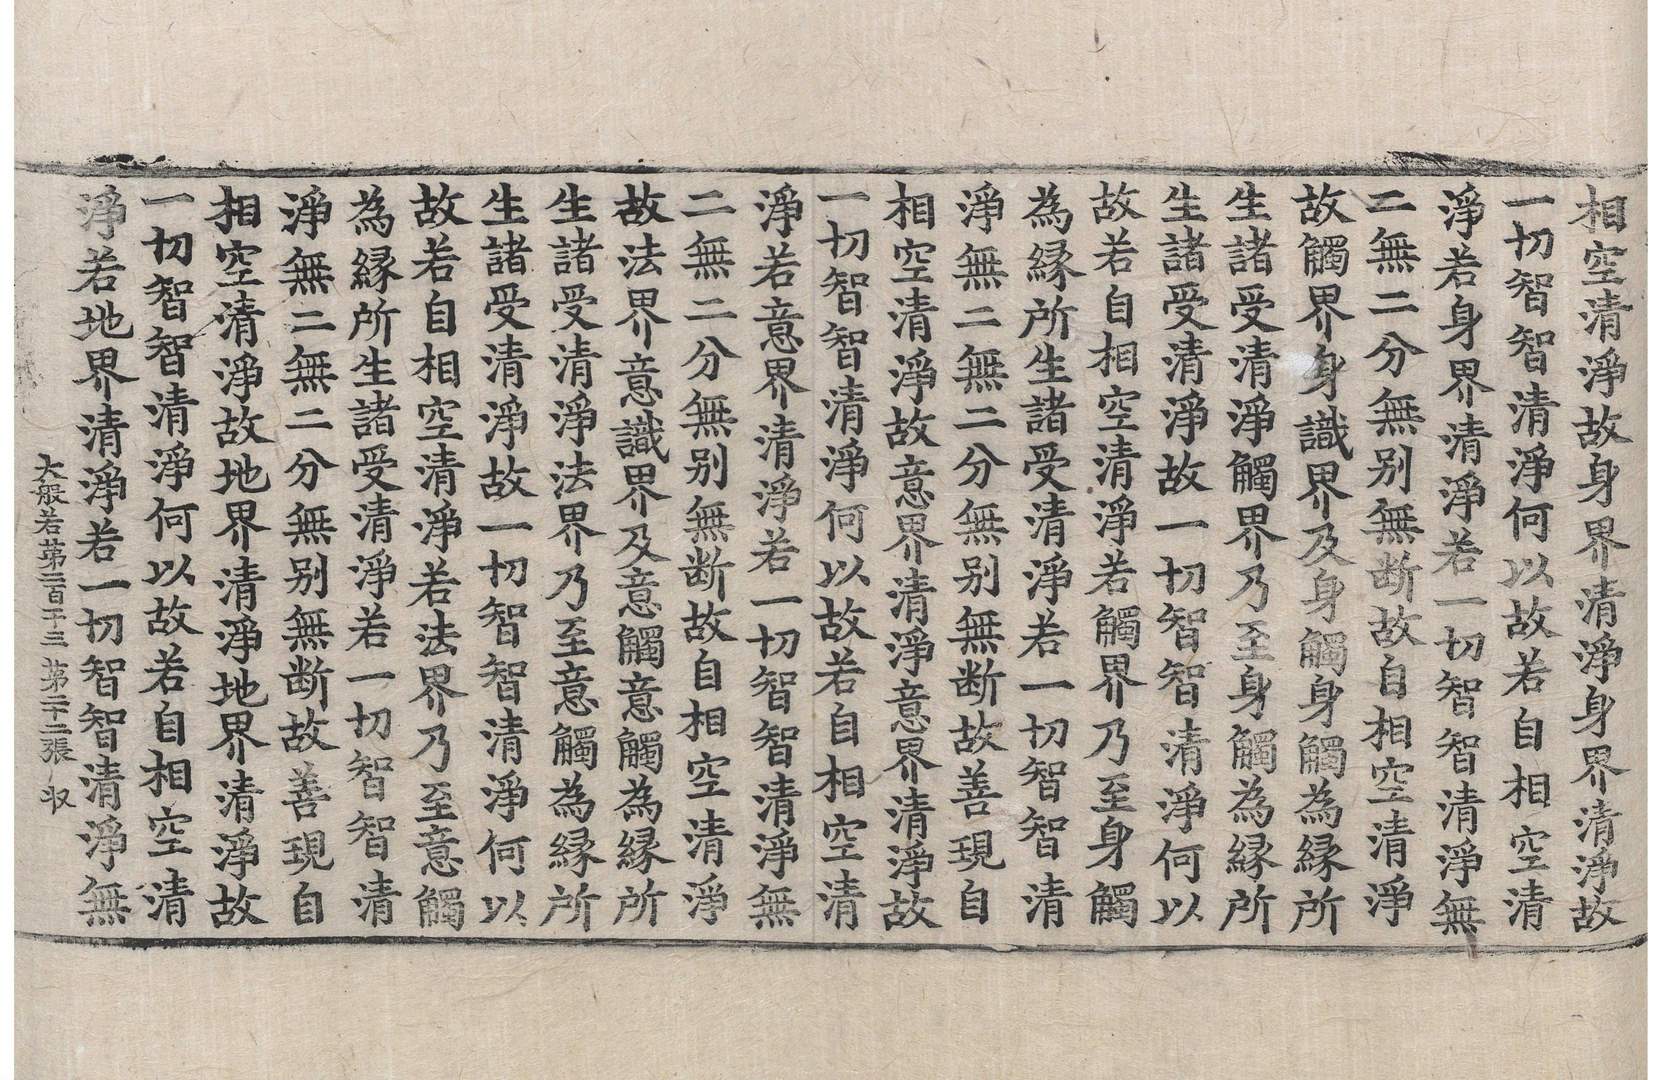 相空清淨故身界清淨身界清淨故
一切智智清淨何以故若自相空清
淨若身界清淨若一切智智清淨無
二無二分無别無断故自相空清淨
故觸界身識界及身觸身觸為縁所
生諸受清淨觸界乃至身觸為縁所
生諸受清淨故一切智智清淨何以
故若自相空清淨若觸界乃至身觸
為縁所生諸受清淨若一切智智清
淨無二無二分無别無断故善現自
相空清淨故意界清淨意界清淨故
一切智智清淨何以故若自相空清
淨若意界清淨若一切智智清淨無
二無二分無别無断故自相空清淨
故法界意識界及意觸意觸為縁所
生諸受清淨法界乃至意觸為縁所
生諸受清淨故一切智智清淨何以
故若自相空清淨若法界乃至意觸
為縁所生諸受清淨若一切智智清
淨無二無二分無别無断故善現自
相空清淨故地界清淨地界清淨故
一切智智清淨何以故若自相空清
淨若地界清淨若一切智智清淨無
大般若第二百十三 第二十二張 収